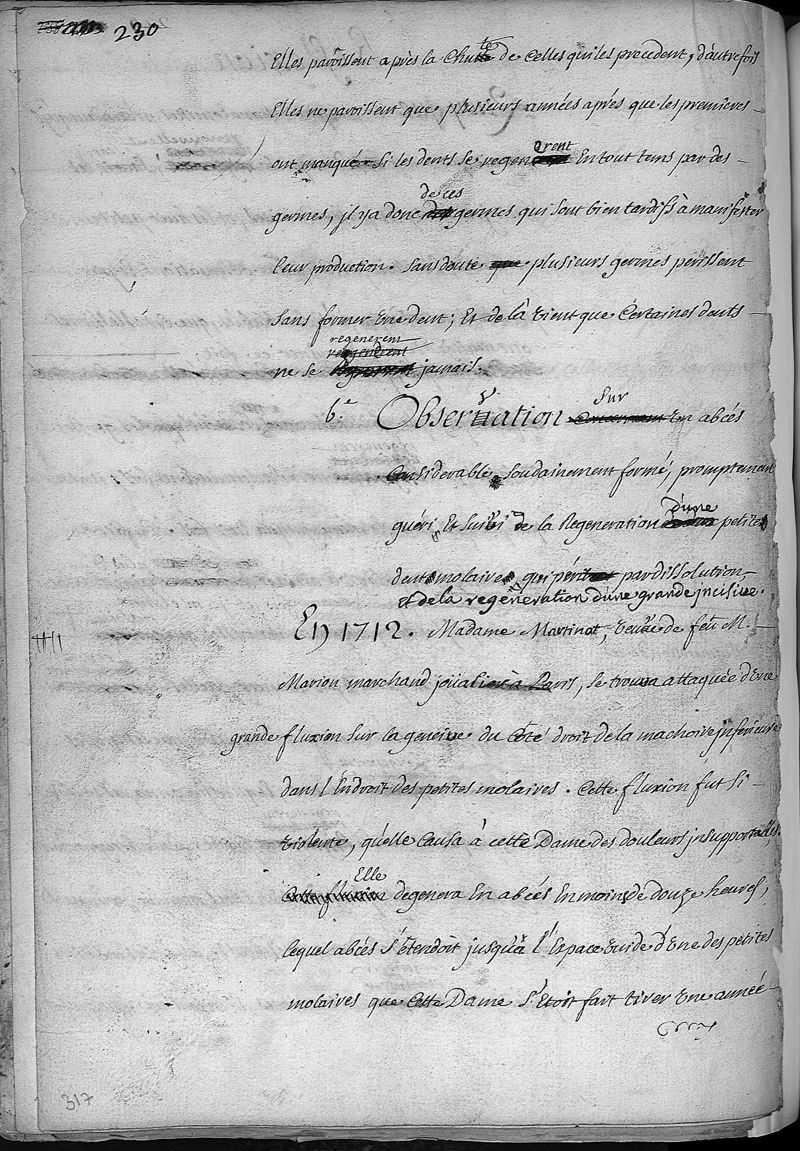 230
Elles paroissent après la Chute de Celles qui les precedent, d'autrefois
Elles ne paroissent que plusieurs années après que les premieres
ont manqué. Si les dents se regenerent En tout tems par des
germes, jl y a donc de ces germes qui sont bien tardifs à manifester
leur production. Sans doute que plusieurs germes périssent
sans former vne dent; Et de là vient que Certaines dents
ne se regenerent jamais.
6.e Observation Sur Vn abcés
Considerable, soudainement formé, promptement
guéri, Et suivi de la Regeneration d'une petite
dent molaire, qui périt par dissolution,
et de la regénération d'une grande jncisive.
En 1712. Madame Martinot, veuve de feu M.
Marion marchand joüalier à Paris, se trouva attaquée d'vne
grande fluxion sur la gencive du côté droit de la machoire jnférieure
dans l'Endroit des petites molaires. Cette fluxion fut si
violente, qu'elle Causa à cette Dame des douleurs jnsupportables,
Elle degenera En abcés En moins de douze heures,
lequel abcés s'étendoit jusqu'à l'Espace vuide d'vne des petites
molaires que Cette Dame s'étoit fait tirer vne année
317